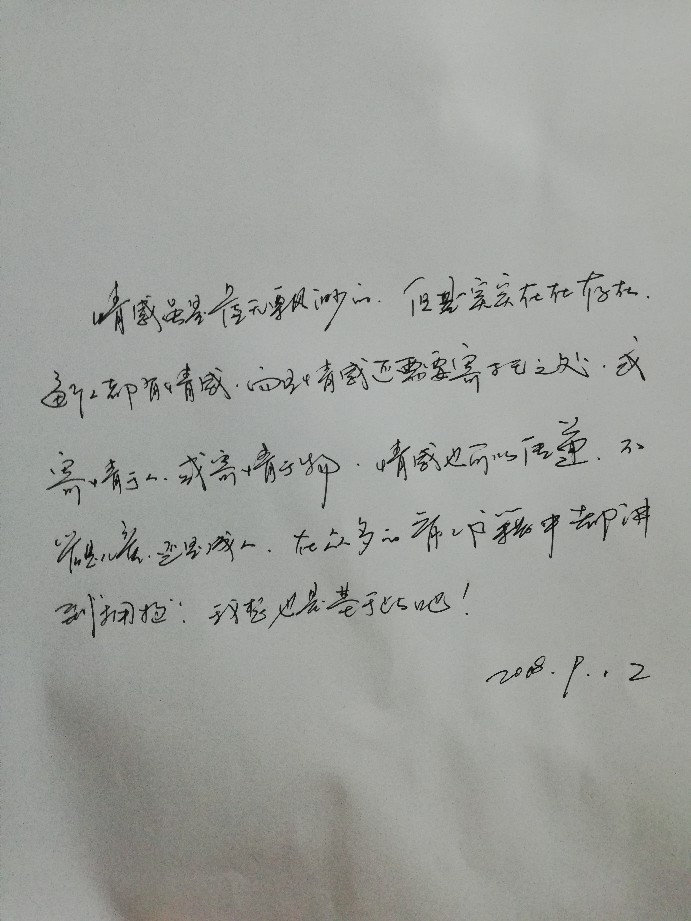 情感虽是虚无飘渺的.但是实实在在存在.
每个人都有情感.而且情感还需要寄托之处.或
寄情于人.或寄情于物.情感也可以传递.不
管是儿童.还是成人.在众多的育儿书籍中都讲
到“拥抱”:我想也是基于此吧!
2008.9.12